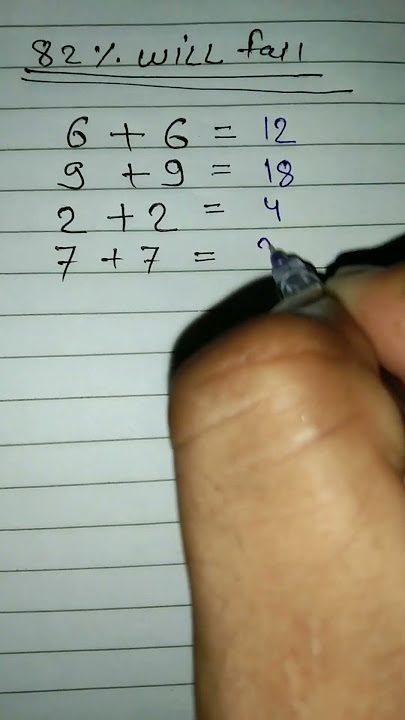 82% will fall
6 + 6 = 12
9 + 9 = 18
2 + 2 = 4
7 + 7 =